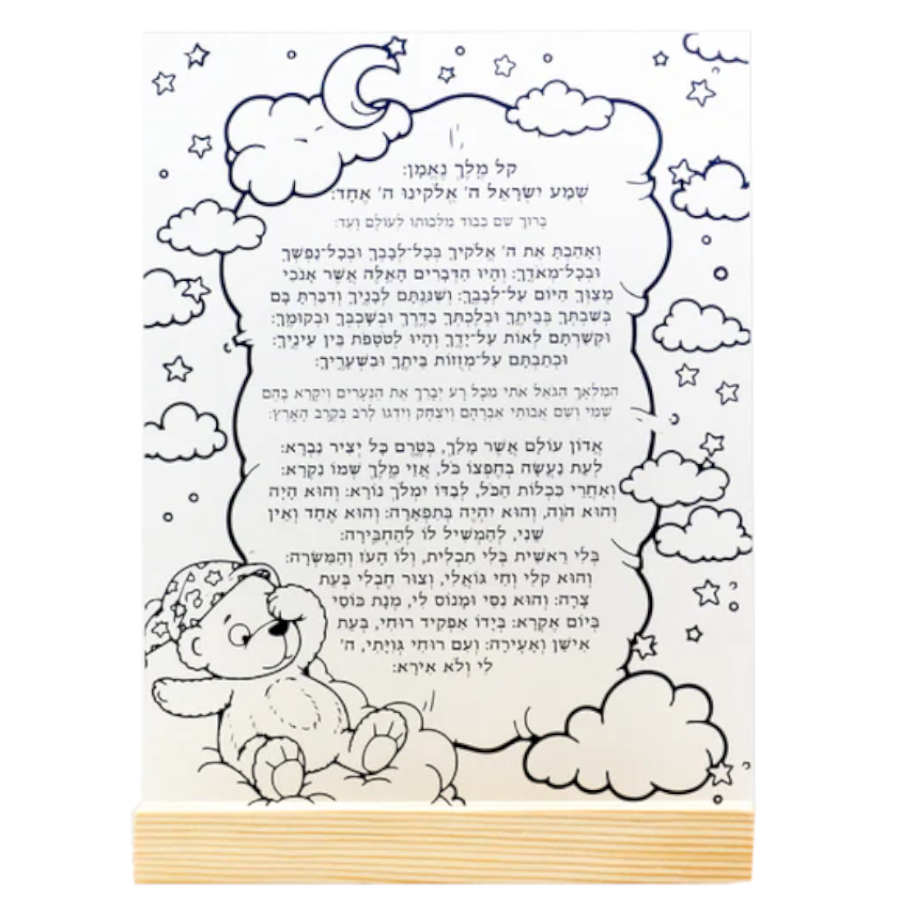 קל מֶלֶךְ נֶאֱמָן:
שְׁמַע יִשְׂרָאֵל ה' אֱלֹקֵינוּ ה' אֶחָד:
בָּרוּךְ שֵׁם כְּבוֹד מַלְכוּתוֹ לְעוֹלָם וָעֶד:
וְאָהַבְתָּ אֵת ה' אֱלֹקֶיךָ בְּכָל-לְבָבְךָ וּבְכָל-נַפְשְׁךָ
וּבְכָל-מְאֹדֶךָ: וְהָיוּ הַדְּבָרִים הָאֵלֶּה אֲשֶׁר אָנֹכִי
מְצַוְּךָ הַיּוֹם עַל-לְבָבֶךָ: וְשִׁנַּנְתָּם לְבָנֶיךָ וְדִבַּרְתָּ בָּם
בְּשִׁבְתְּךָ בְּבֵיתֶךָ וּבְלֶכְתְּךָ בַדֶּרֶךְ וּבְשָׁכְבְּךָ וּבְקוּמֶךָ:
וּקְשַׁרְתָּם לְאוֹת עַל-יָדֶךָ וְהָיוּ לְטֹטָפֹת בֵּין עֵינֶיךָ:
וּכְתַבְתָּם עַל-מְזֻזוֹת בֵּיתֶךָ וּבִשְׁעָרֶיךָ:
הַמַּלְאָךְ הַגֹּאֵל אֹתִי מִכָּל רָע יְבָרֵךְ אֶת הַנְּעָרִים וְיִקָּרֵא בָהֶם
שְׁמִי וְשֵׁם אֲבוֹתַי אַבְרָהָם וְיִצְחָק וְיִדְגּוּ לָרֹב בְּקֶרֶב הָאָרֶץ:
אֲדוֹן עוֹלָם אֲשֶׁר מָלַךְ, בְּטֶרֶם כָּל יְצִיר נִבְרָא:
לְעֵת נַעֲשָׂה בְחֶפְצוֹ כֹּל, אֲזַי מֶלֶךְ שְׁמוֹ נִקְרָא:
וְאַחֲרֵי כִּכְלוֹת הַכֹּל, לְבַדּוֹ יִמְלֹךְ נוֹרָא: וְהוּא הָיָה
וְהוּא הֹוֶה, וְהוּא יִהְיֶה בְּתִפְאָרָה: וְהוּא אֶחָד וְאֵין
שֵׁנִי, לְהַמְשִׁיל לוֹ לְהַחְבִּירָה:
בְּלִי רֵאשִׁית בְּלִי תַכְלִית, וְלוֹ הָעֹז וְהַמִּשְׂרָה:
וְהוּא קֵלִי וְחַי גּוֹאֲלִי, וְצוּר חֶבְלִי בְּעֵת
צָרָה: וְהוּא נִסִּי וּמָנוֹס לִי, מְנָת כּוֹסִי
בְּיוֹם אֶקְרָא: בְּיָדוֹ אַפְקִיד רוּחִי, בְּעֵת
אִישַׁן וְאָעִירָה: וְעִם רוּחִי גְּוִיָּתִי, ה'
לִי וְלֹא אִירָא: